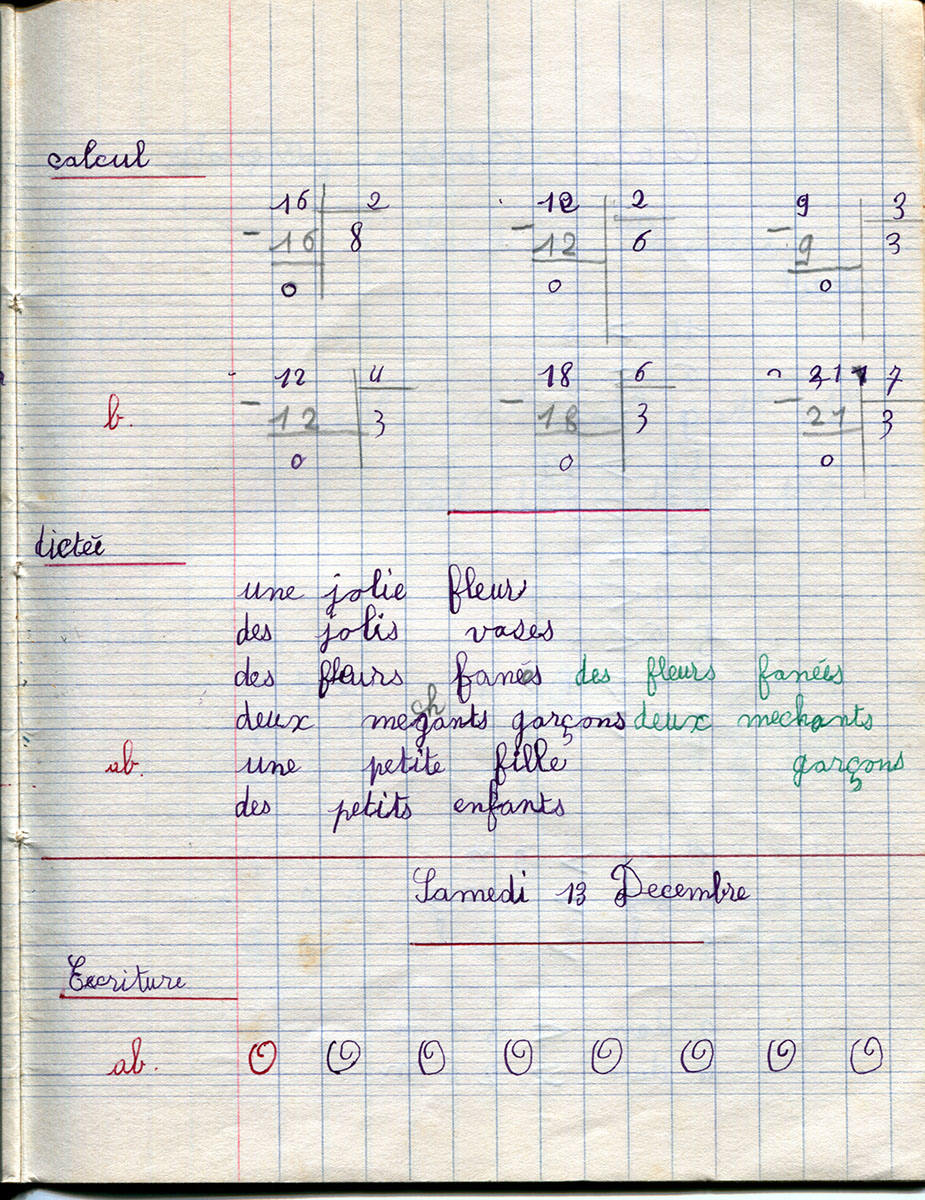 calcul
16 2 12 2 9 3
- 16 8 - 12 6 - 9 3
0 0 0
12 4 18 6 21 7
b. - 12 3 - 18 3 - 21 3
0 0 0
dictée
une jolie fleur
des jolis vases
des fleurs fanés des fleurs fanées
ch
deux megants garçons deux mechants
ab. une petite fille garçons
des petits enfants
Samedi 13 Decembre
Eccriture
ab. O O O O O O O O